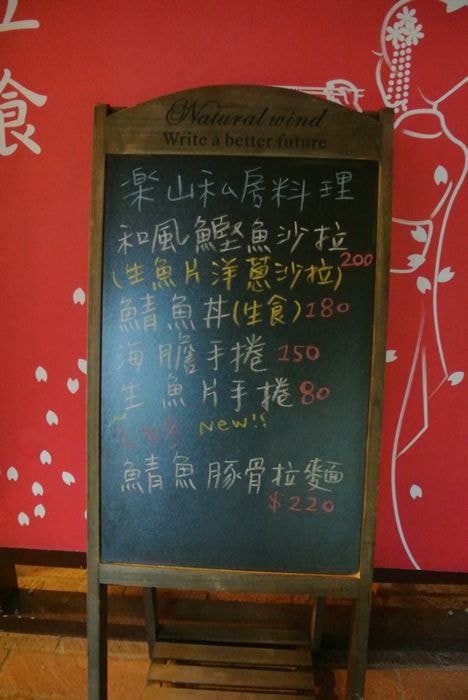 食
Natural wind
Write a better future
楽山私房料理
和風鰹魚沙拉
200
(生魚片洋蔥沙拉)
鯖魚丼(生食)180
海膽手捲 150
生魚片手捲 80
New!!
鯖魚豚骨拉麵
$220